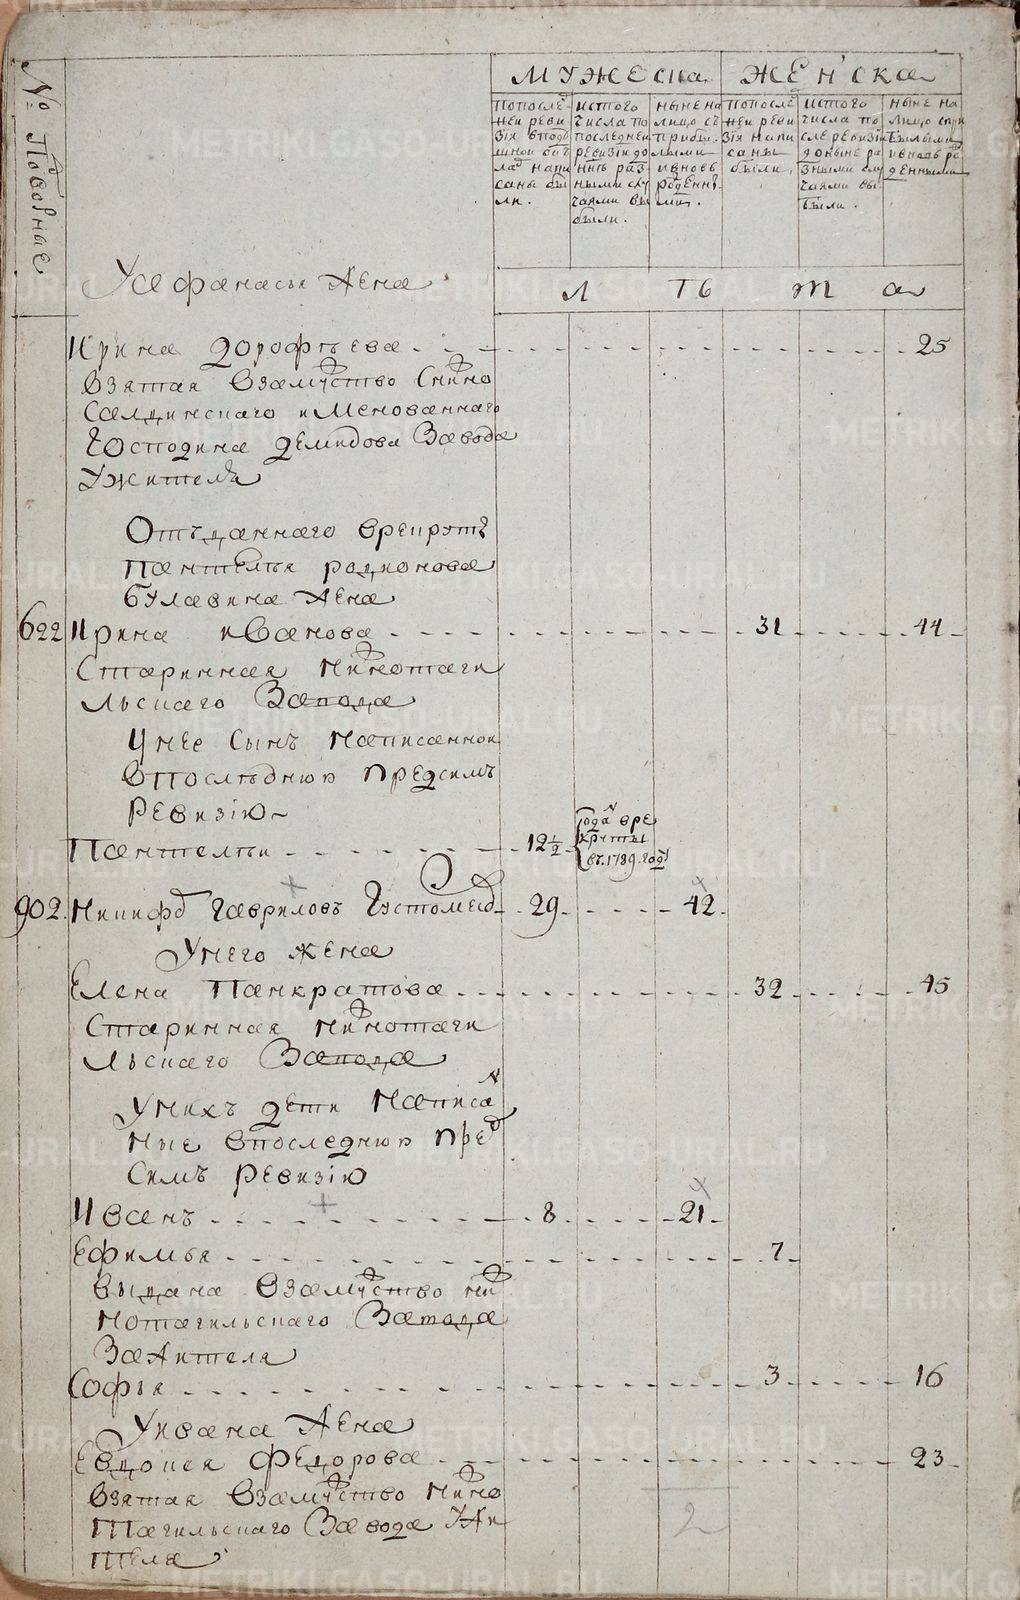 № Подворные
МУЖЕСКА ЖЕНСКА
Попослед
ней реви
зіи вподу
шной ок
лад напи
саны бы
ли.
истого
числа по
последней
ревизіи до
ныне раз
ными слу
чаями вы
были.
ныне на
лицо съ
прибы
лыми
ивновь
рожденны
ми.
Попосле
ней реви
зіи напи
саны
были.
истого
числа по
сле ревизіи
доныне ра
зными слу
чаями вы
были.
ныне на
лицо спри
былыми
ивновь ро
жденными
Л Ѣ Т А
Уафанасья жена
Ирина дорофѣева 25
взятая взамужство снижно
салдинскаго имЕнованнаго
Господина дЕмидова Завода
Ужителя
Отъданнаго врекруты
пантелѣя родионова
булавина жена
622 Ирина иванова 31 44
Старинная нижнотаги
льскаго Завода
Унее Сынъ написанной
впослѣднюю предсимъ
Ревизію
Пантелѣй 12½ года вре
круты
въ 1789 году
902. Никифор Гавриловъ Густомесов 29 42
Унего жена
Елена Панкратова 32 45
Старинная нижнотаги
льскаго Завода
Унихъ дети написан
ные впоследнюю пред
симъ ревизію
Иванъ 8 21
Ефимья 7
выдана взамужство ниж
нотагильскаго Завода
Зажителя
Софья 3 16
Уивана жена
Евдокея Федорова 23
взятая взамужство нижно
тагильскаго Завода Ужи
теля
2
METRIKI.GASO-URAL.RU